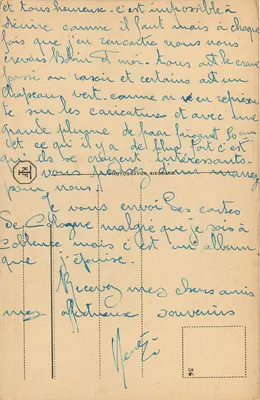 et tous heureuse. c'est impossible à
décrire comme il faut mais à chaque
fois que j'en rencontre nous nous
crevons Robin et moi. tous ont le crane
passé au rasoir et certains ont un
chapeau vert. comme on en représen
te sur les caricatures et avec une
grande plume de faisant
et ce qu'il y a de plus fort c'est
que ils se croyent intéressants.
vous parlez d'un manège
pour nous!
Je vous envoi des cartes
de Cologne malgré que je sois à
Coblence mais c'est un album
que j'épuise.
Recevez mes chers amis
mes affectueux souvenirs
René